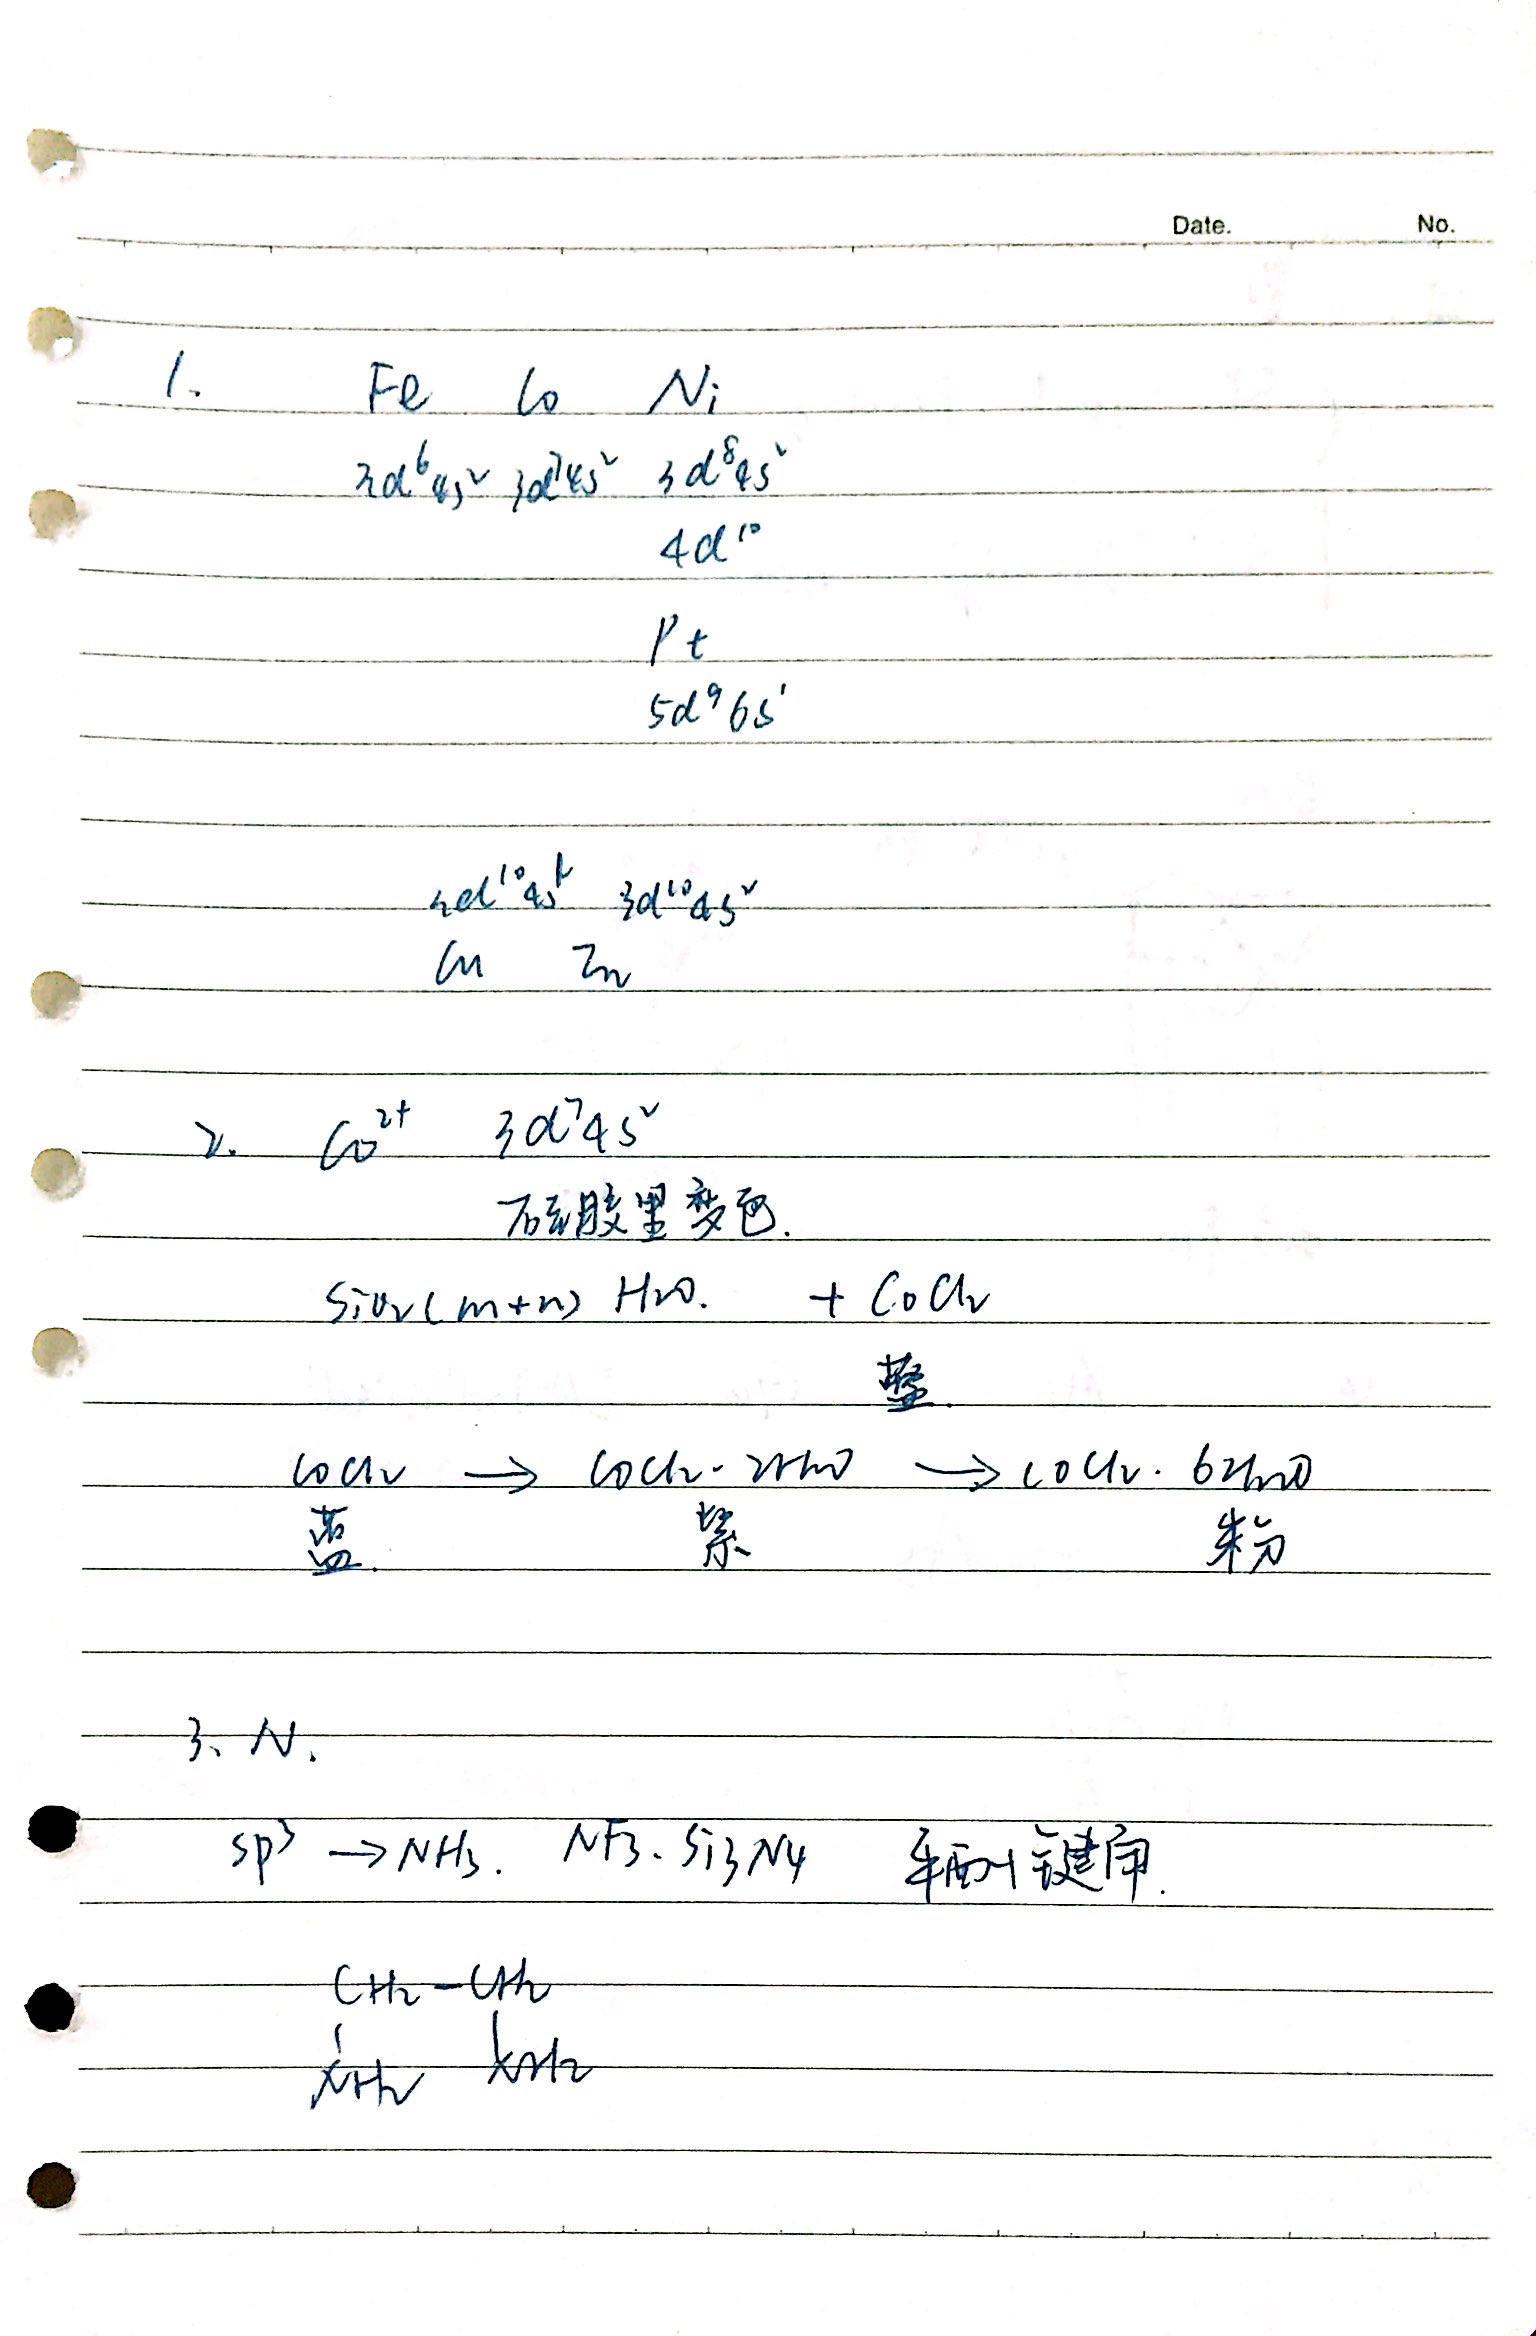 Date. No.
1. Fe Co Ni
3d⁶4s² 3d⁷4s² 3d⁸4s²
4d¹⁰
Pt
5d⁹6s¹
3d¹⁰4s¹ 3d¹⁰4s²
Cu Zn
2. Co²⁺ 3d⁷4s²
硅胶里变色.
SiO₂(m+n)H₂O. + CoCl₂
CoCl₂ → CoCl₂·2H₂O → CoCl₂·6H₂O
蓝. 紫 粉
3、N.
sp³ → NH₃. NF₃. Si₃N₄ 键角.
CH₂-CH₂
NH₂ NH₂